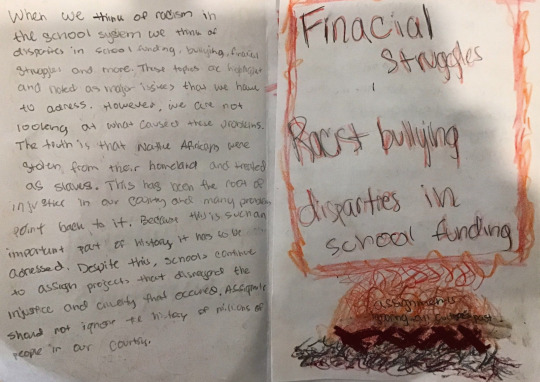 When we think of racism in
the school system we think of
disparities in school funding, bullying, finacial
struggles and more. These topics are highlighted
and noted as major issues that we have
to adress. However, we are not
looking at what caused these problems.
The truth is that Native Africans were
stolen from their homeland and treated
as slaves. This has been the root of
injustice in our country and many problems
point back to it. Because this is such an
important part of history it has to be
adressed. Despite this, schools continue
to assign projects that disregard the
injustice and cruelty that occured. Assignments
should not ignore the history of millions of
people in our country.
Finacial
struggles
Racist bullying
disparties in
school funding
assignments
past